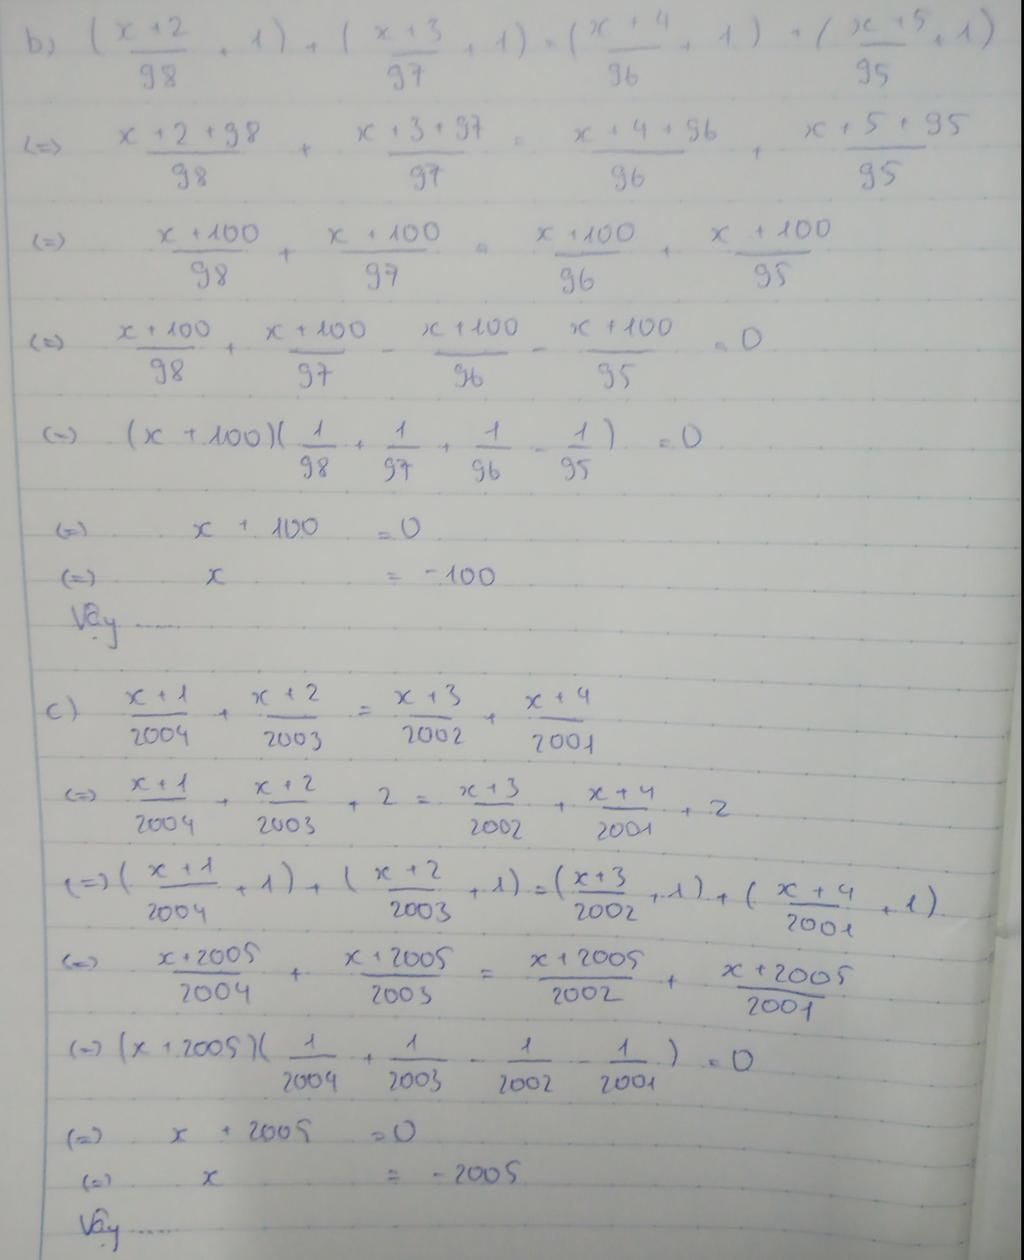 b) (x+2/98 + 1) + (x+3/97 + 1) = (x+4/96 + 1) + (x+5/95 + 1)
(=) x+2+98/98 + x+3+97/97 = x+4+96/96 + x+5+95/95
(=) x+100/98 + x+100/97 = x+100/96 + x+100/95
(=) x+100/98 + x+100/97 - x+100/96 - x+100/95 = 0
(=) (x+100)(1/98 + 1/97 + 1/96 - 1/95) = 0
(=) x + 100 = 0
(=) x = -100
Vậy ......
c) x+1/2004 + x+2/2003 = x+3/2002 + x+4/2001
(=) x+1/2004 + x+2/2003 + 2 = x+3/2002 + x+4/2001 + 2
(=) (x+1/2004 + 1) + (x+2/2003 + 1) = (x+3/2002 + 1) + (x+4/2001 + 1)
(=) x+2005/2004 + x+2005/2003 = x+2005/2002 + x+2005/2001
(=) (x+2005)(1/2004 + 1/2003 - 1/2002 - 1/2001) = 0
(=) x + 2005 = 0
(=) x = -2005
Vậy ......